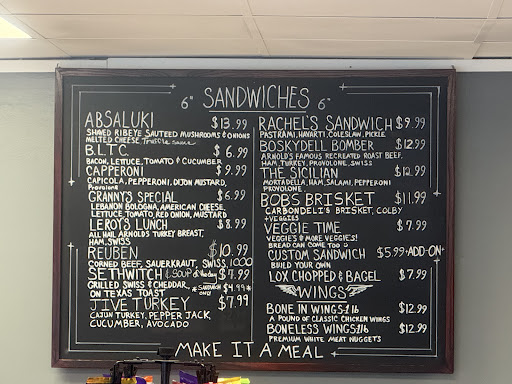 6" SANDWICHES 6"
ABSALUKI $13.99
SHAVED RIBEYE SAUTEED MUSHROOMS & ONIONS
MELTED CHEESE, Truffle sauce
B.L.T.C $6.99
BACON, LETTUCE, TOMATO & CUCUMBER
CAPPERONI $9.99
CAPICOLA, PEPPERONI, DIJON MUSTARD,
Provolone
GRANNY'S SPECIAL $6.99
LEBANON BOLOGNA, AMERICAN CHEESE,
LETTUCE, TOMATO, RED ONION, MUSTARD
LEROY'S LUNCH $8.99
ALL HAIL ARNOLDS TURKEY BREAST,
HAM, SWISS
REUBEN $10.99
CORNED BEEF, SAUERKRAUT, SWISS, 1000
SETHWITCH & SOUP of the day $7.99
GRILLED SWISS & CHEDDAR, * SANDWICH ONLY $4.99 *
ON TEXAS TOAST
JIVE TURKEY $7.99
CAJUN TURKEY, PEPPER JACK,
CUCUMBER, AVOCADO
RACHEL'S SANDWICH $9.99
PASTRAMI, HAVARTI, COLESLAW, PICKLE
BOSKYDELL BOMBER $12.99
ARNOLD'S FAMOUS RECREATED ROAST BEEF,
HAM, TURKEY, PROVOLONE, SWISS
THE SICILIAN $12.99
MORTADELLA, HAM, SALAMI, PEPPERONI
PROVOLONE
BOB'S BRISKET $11.99
CARBONDELI'S BRISKET, COLBY
+VEGGIES
VEGGIE TIME $7.99
VEGGIE'S & MORE VEGGIES!
BREAD CAN COME TOO
CUSTOM SANDWICH $5.99+ADD-ON
BUILD YOUR OWN
LOX CHOPPED & BAGEL $7.99
WINGS
BONE IN WINGS-1 lb $12.99
A POUND OF CLASSIC CHICKEN WINGS
BONELESS WINGS-1lb $12.99
PREMIUM WHITE MEAT NUGGETS
MAKE IT A MEAL